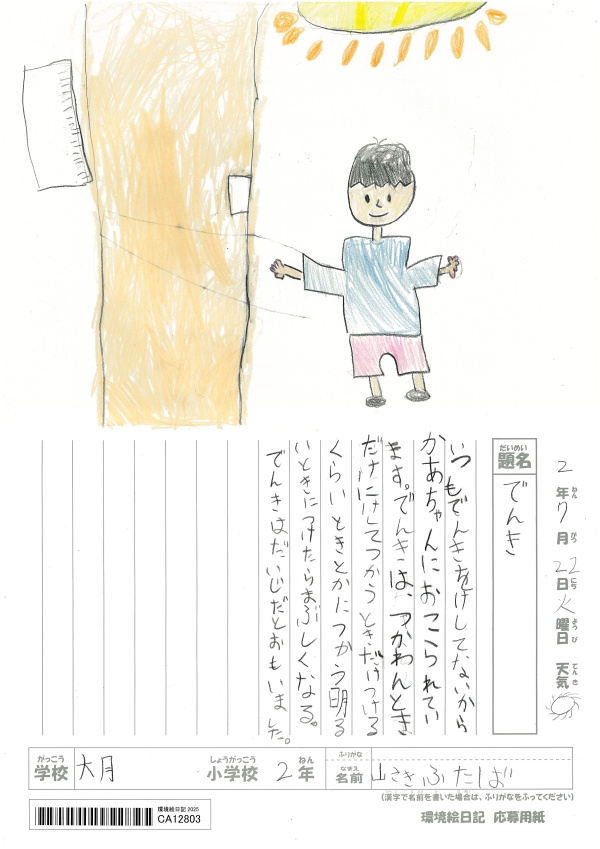 2年7月22日火曜日 天気
ねん がつ にち ようび てんき
だいめい
題名
でんき
いつもでんきをけしてないから
かあちゃんにおこられてい
ます。でんきは、つかわんとき
だけにけしてつかうときだけつける
くらいときとかにつかう明る
いときにつけたらまぶしくなる。
でんきはだいじだとおもいました。
がっこう
学校
大月
しょうがっこう
小学校
2年
ねん
ふりがな
なまえ
名前
山さきふたば
(漢字で名前を書いた場合は、ふりがなをふってください)
環境絵日記 2025
CA12803
環境絵日記 応募用紙